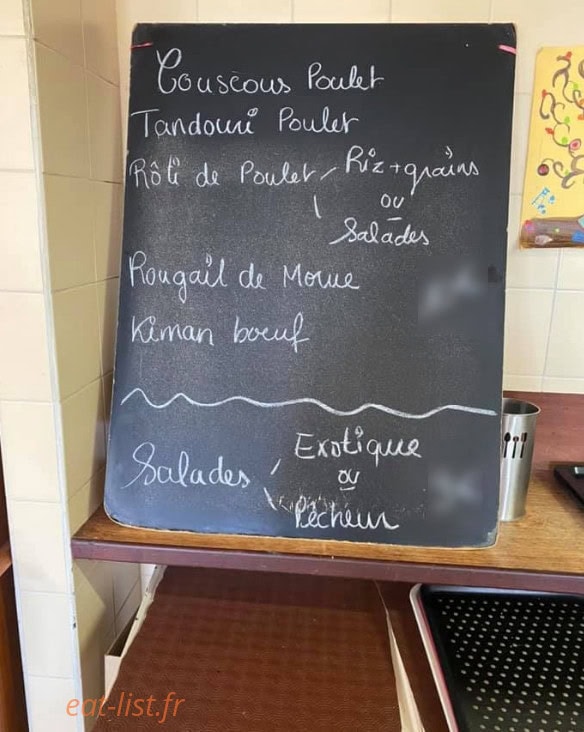 Couscous Poulet
Tandouri Poulet
Rôti de Poulet Riz + grains
ou
Salades
Rougail de Morue
Kiman boeuf
Exotique
Salades ou
Pêcheur
eat-list.fr